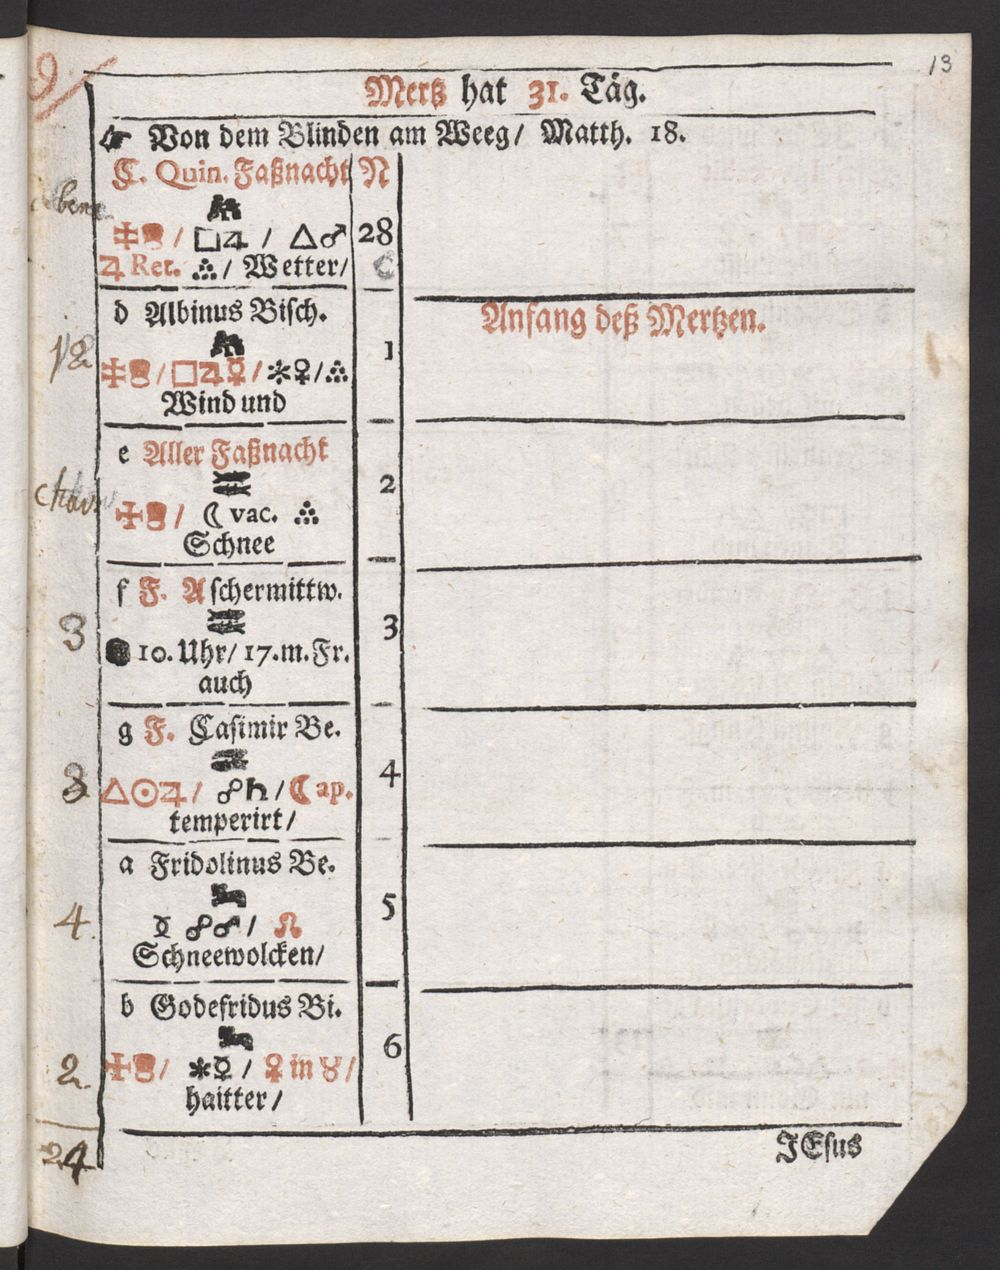 13
Mertz hat 31. Täg.
☞ Von dem Blinden am Weeg/ Matth. 18.
C. Quin. Faßnacht N
/ □♃ / △♂ 28
♃ Ret. / Wetter/ C
d Albinus Bisch.
Anfang deß Mertzen.
1
/ □♃☿ / ✱♀/
Wind und
e Aller Faßnacht
2
/ ☾ vac.
Schnee
f F. Aschermittw.
3 3
10. Uhr/ 17. m. Fr.
auch
g F. Casimir Be.
3 △☉♃/ ☍♄/ ☾ap. 4
temperirt/
a Fridolinus Be.
4. ☍♂/ ☊ 5
Schneewolcken/
b Godefridus Bi.
6
2. / ✱☿ / ♀ in ♉/
haitter/
24
JEsus